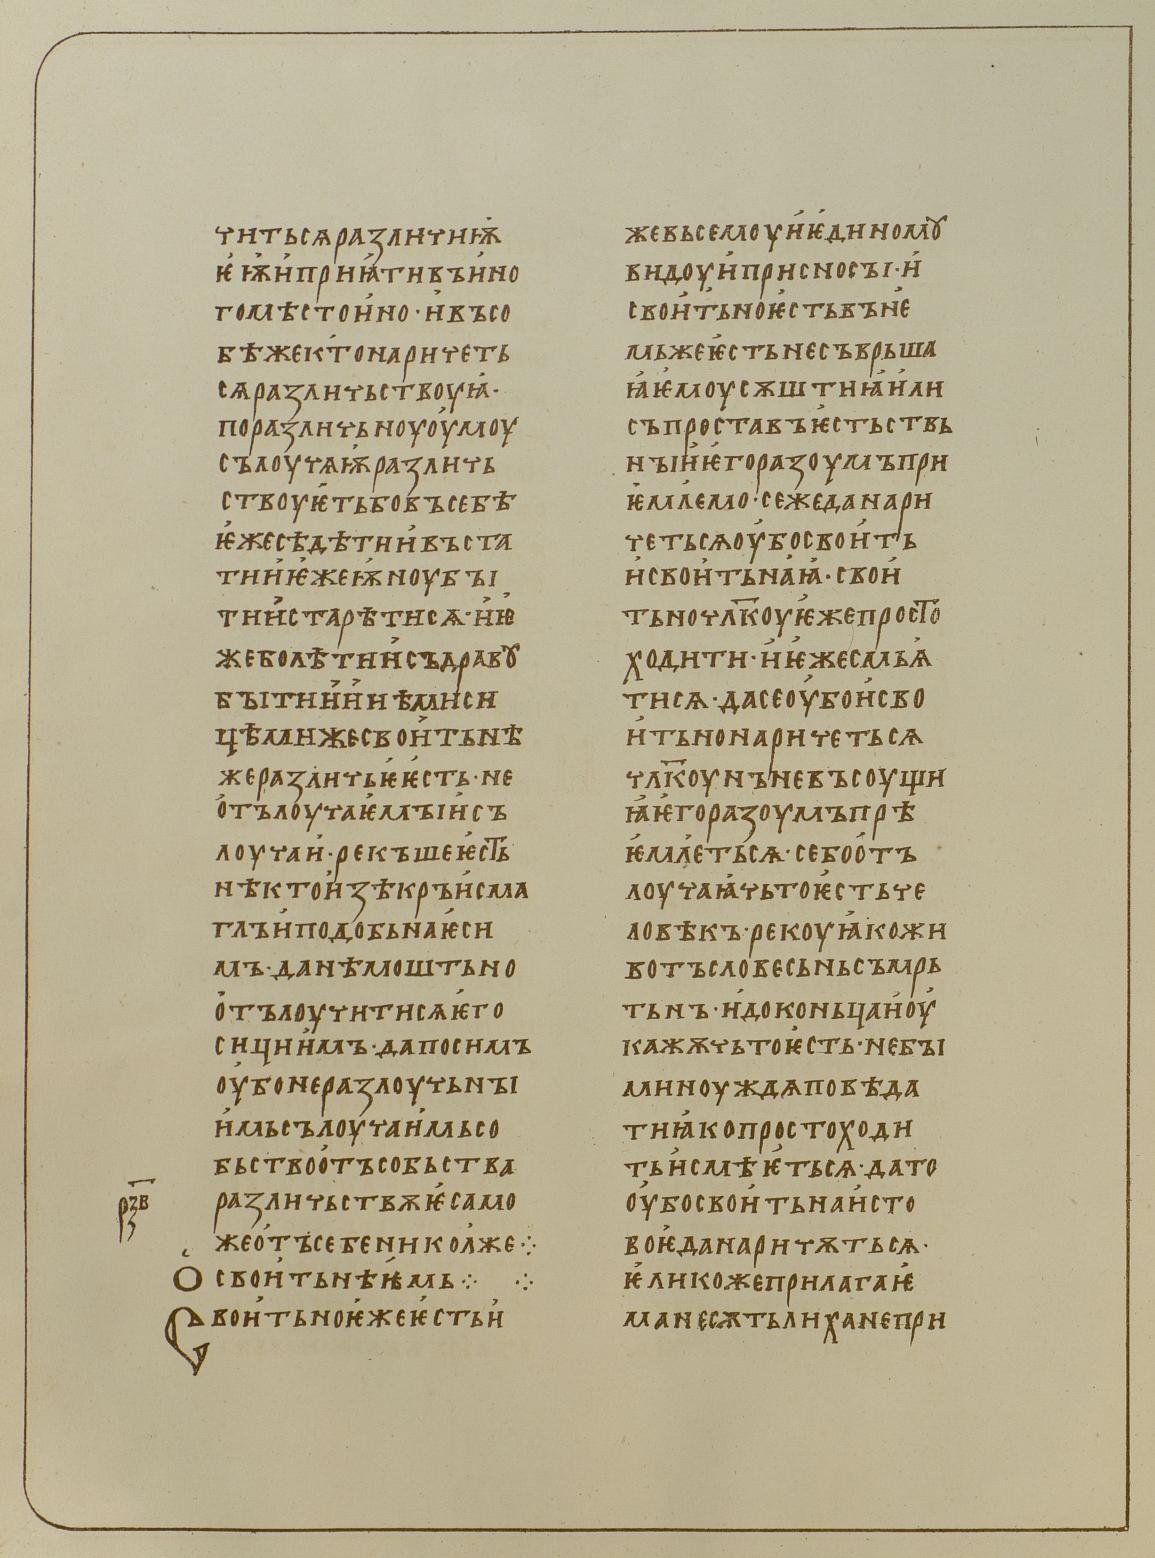 чнтьсѧразлнчнѭ
ѥѭнпрнꙗтнвъино
гомѣстоино·нвъсо
бѣжектонарнчеть
сѧразлнчьствоуꙗ·
поразлнчьноуоумоу
сълоучѧѭразлнчь
ствоуѥтьбовъсебѣ
ѥжесѣдѣтнивъста
тнниѥжеѭноубъı
тннстарѣтнсѧ·ню
жеболѣтннсъдравꙋ
бъıтннннѣмнсн
цѣмнжесвонтьнѣ
жеразлнчьѥѥсть·не
отълоучаѥмъıнсъ
лоучан·рекъшеѥсть
нѣктонзѣкръисма
глъıнподобьнаѥсн
мъ·данѣмоштьно
отълоучнтнсѧѥго
снцнимъ·дапоснмъ
оубонеразлоучьнъı
нмьсълоучанмьсо
бьствоотъсобьства
разлнчьствѫѥсамо
жеотъсебеннколже⁘
освонтьнѣѥмь⁘ ⁘
Свонтьноѥжеѥстьн
рзв
з
жевьсемоунѥднномꙋ
вндоунпрнсносъı·н
свонтьноѥстьвъне
мьжеѥстьнесъврьша
ꙗѥмоусѫштнꙗнлн
съпроставъѥстьствь
нъıнѥгоразоумъпрн
ѥмлемо·сежеданарн
четьсѧоубосвонть
нсвонтьнаꙗ·свон
тьночлкоуѥжепросто
ходнтн·нѥжесмьꙗ
тнсѧ·дасеоубонсво
нтьнонарнчетьсѧ
члкоунъневъсоущн
ꙗѥгоразоумъпрѣ
ѥмлетьсѧ·себоотъ
лоучаꙗчьтоѥстьче
ловѣкъ·рекоуꙗкожн
вотъсловесьньсъмрь
тьнъ·ндоконьцаноу
кажѫчьтоѥсть·небъı
мнноуждѧповѣда
тнꙗкопростоходн
тьнсмѣѥтьсѧ·дато
оубосвонтьнансто
воѥданарнчѫтьсѧ·
ѥлнкожепрнлагаѥ
манесѫтьлнханепрн